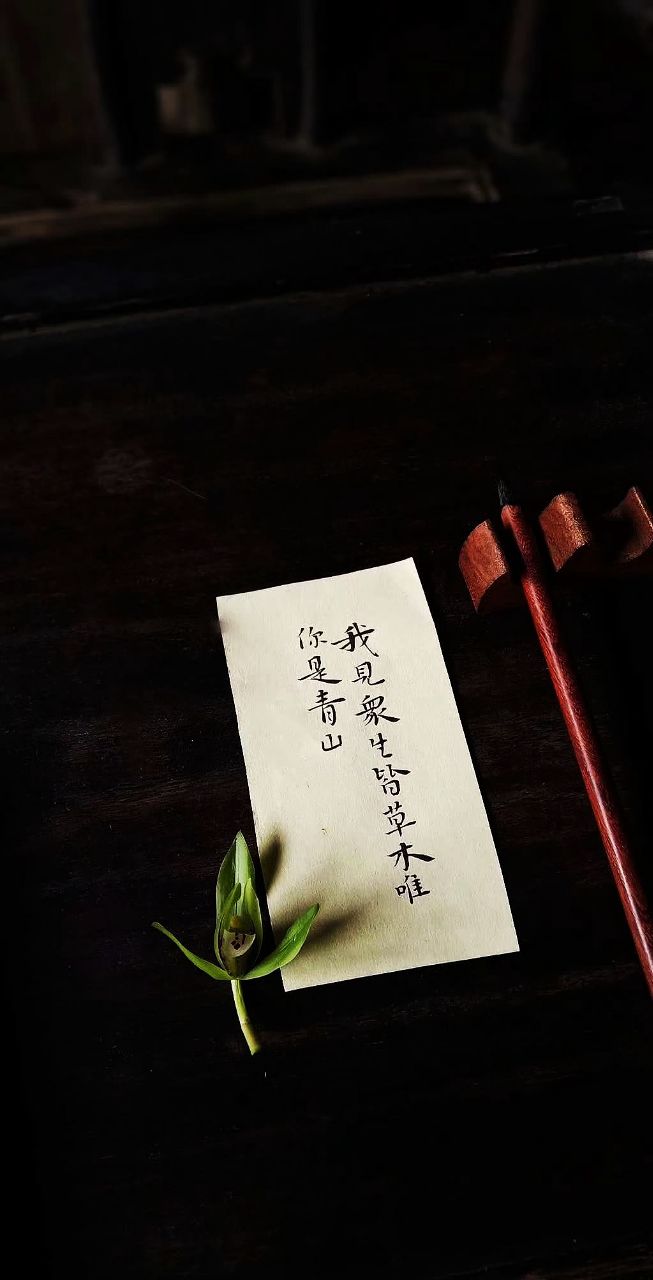 我見衆生皆草木唯
你是青山